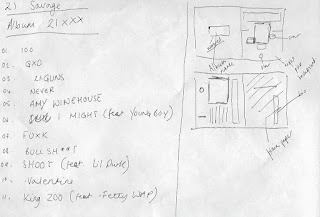 2) Savage
Album: 21XXX
01. 100
02. GXD
03. LIGUNS
04. NEVER
05. AMY WINEHOUSE
06. I MIGHT (feat YOUNG BOY)
07. FUXK
08. BULLSH**T
09. SHOOT (feat Lil Durk)
10. Valentine
11. King 200 (feat. Fetty WAP)
Album
name
car
car